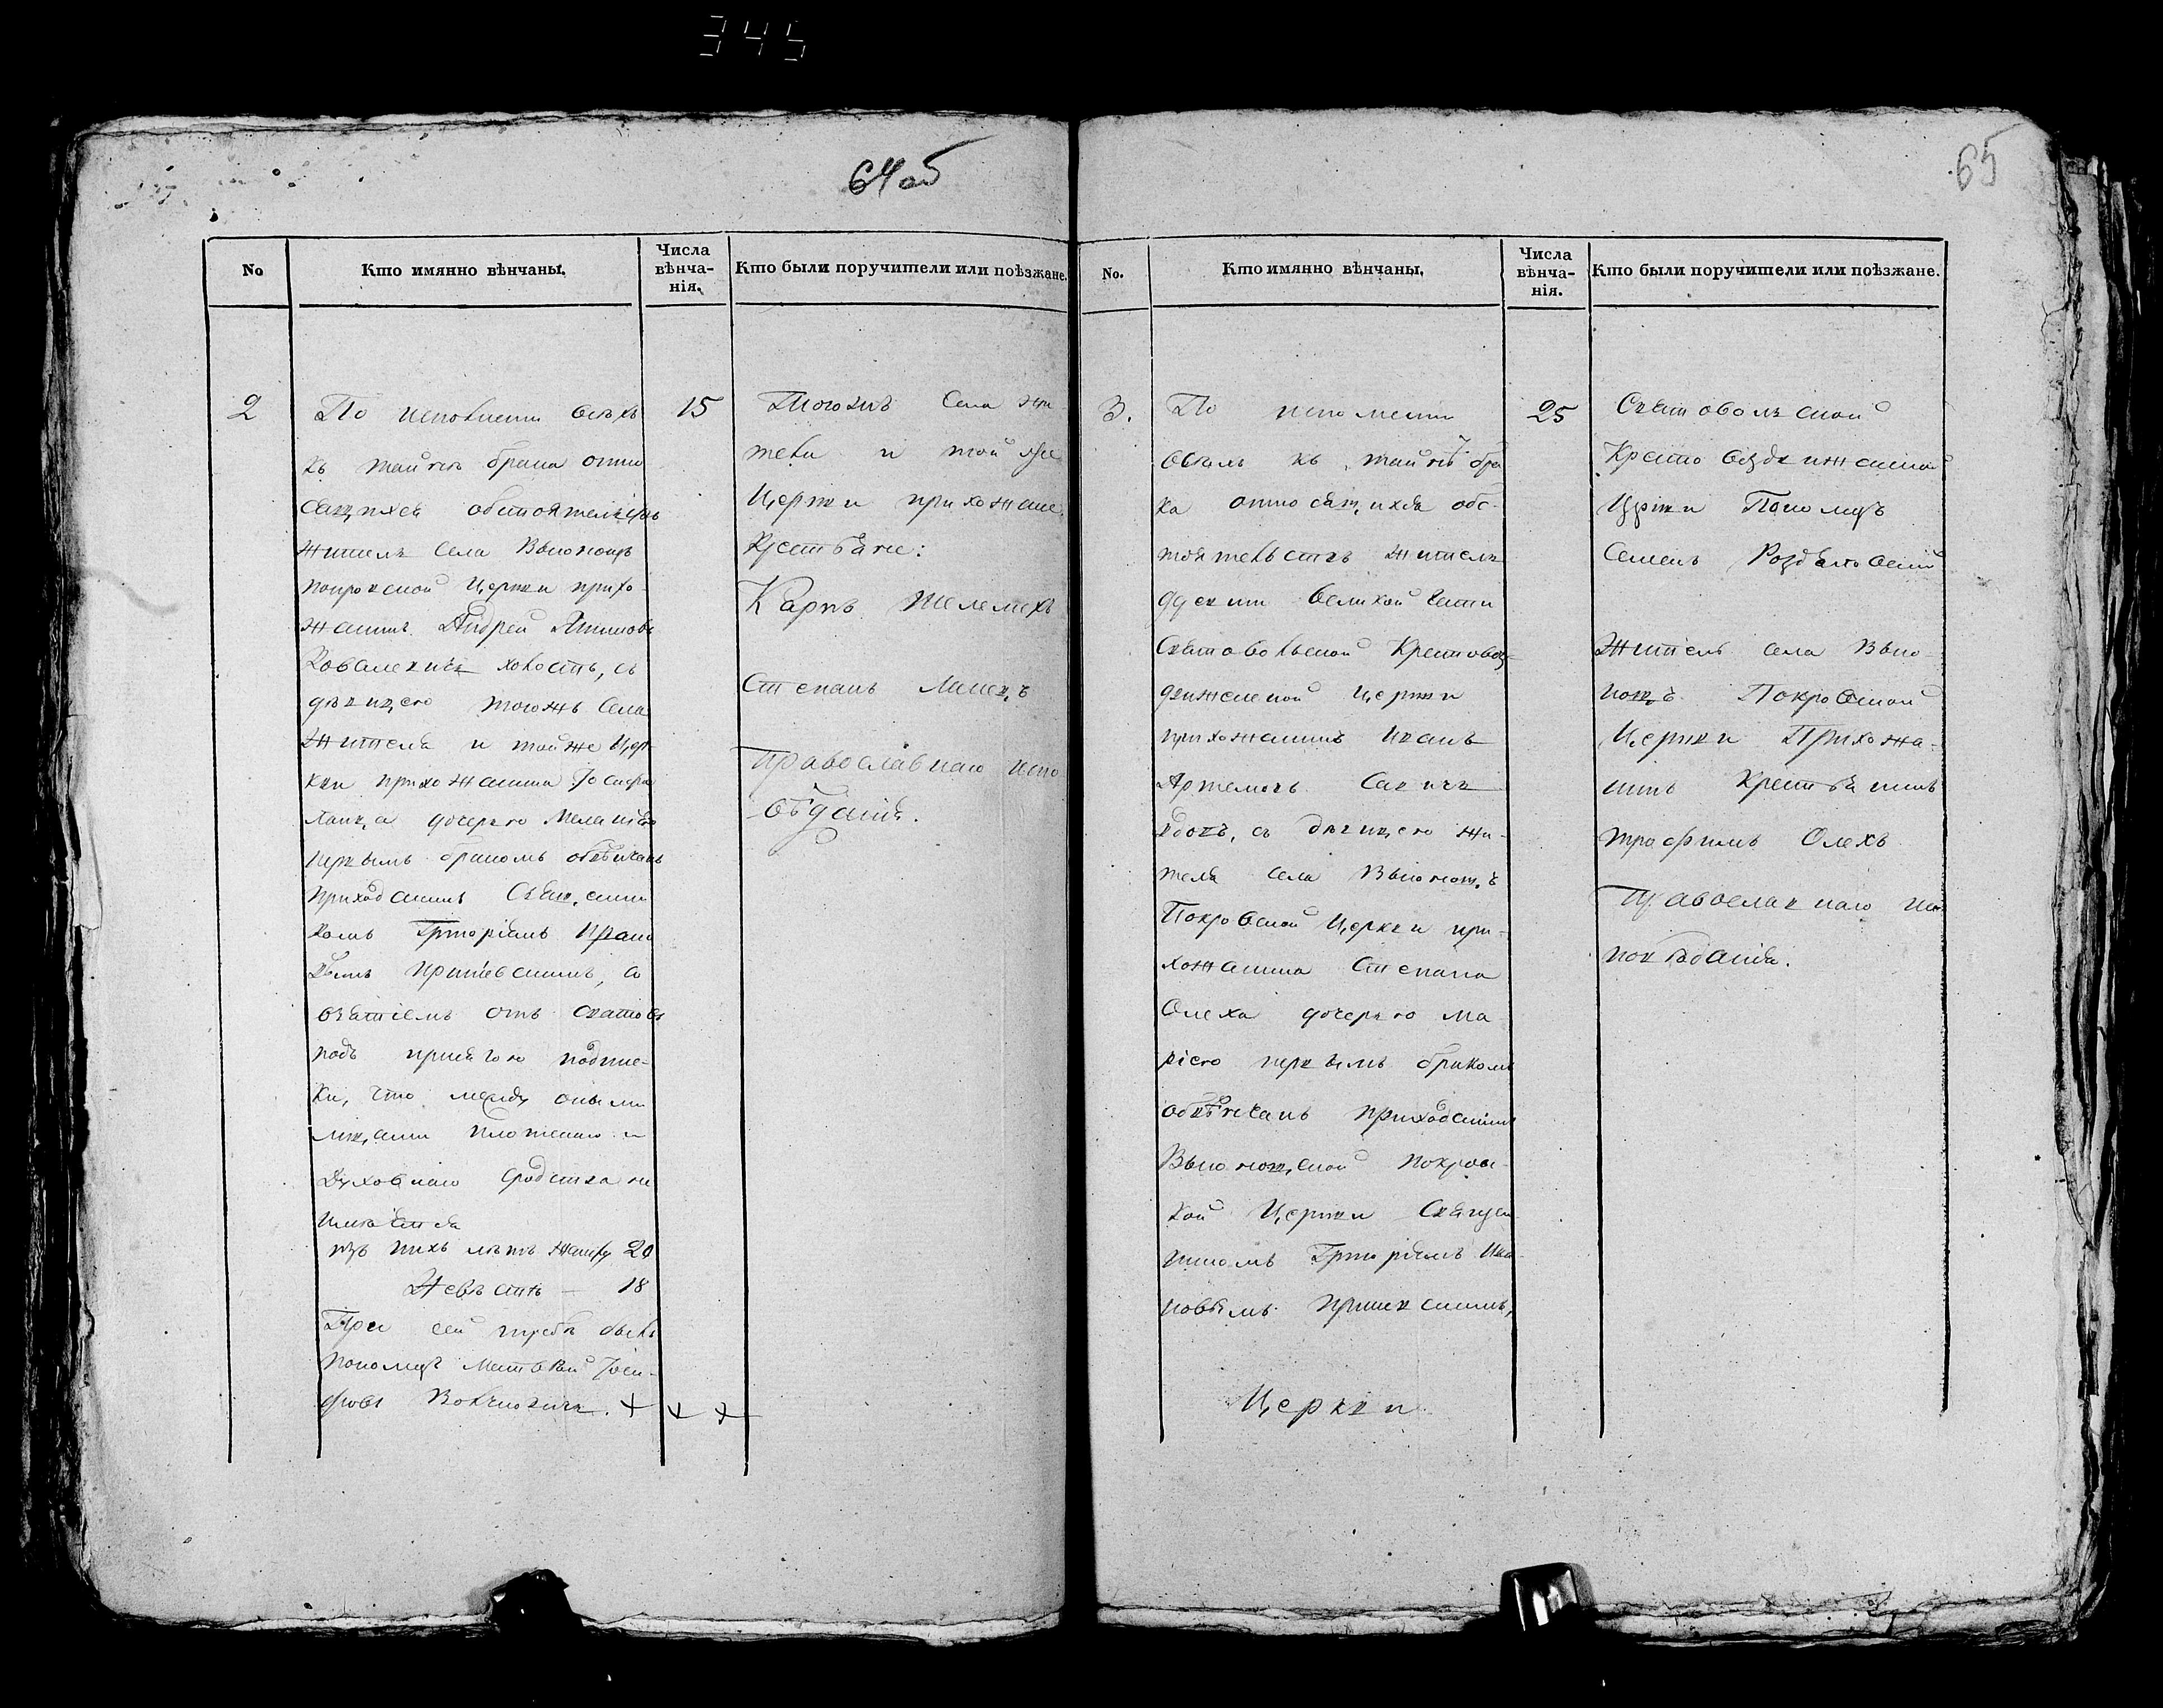 345
64 об
65
No
Кто имянно вѣнчаны.
Числа
вѣнча-
нія.
Кто были поручители или поѣзжане.
2
По исполнении всѣхъ
къ тайнѣ брака отно
сящихся обстоятельствъ
житель села
Покровской Церкви прихо
жанинъ Андрей
холостъ, съ
дѣвицею тогожъ села
жителя и тойже Цер
кви прихожанина Іосифа
дочерью Меланіею
первымъ бракомъ обвѣнчанъ
приходскимъ Священни
комъ Григоріемъ Ивано
вымъ съ
взятіемъ отъ
подъ присягою подпис-
ки, что между оными
лицами плотскаго и
Духовнаго сродства не
имѣется
лѣтъ жениху 20
Невѣстѣ — 18
При сей требѣ былъ
пономарь Матвей Іоси-
фовъ
15
Тогожъ села жи
тели и той же
Церкви прихожане
Крестьяне:
Карпъ Шелемехъ
Степанъ
Православнаго испо
вѣданія.
No.
Кто имянно вѣнчаны.
Числа
вѣнча-
нія.
Кто были поручители или поѣзжане.
3.
По исполнении
всѣхъ къ тайнѣ бра
ка относящихся обс-
тоятельствъ житель
Великой Части
Святовольской Крестовоз-
движенской Церкви
прихожанинъ Иванъ
Артемовъ
вдовъ, съ дѣвицею жи-
теля села
Покровской Церкви при-
хожанина Степана
Олеха дочерью Ма
ріею первымъ бракомъ
обвѣнчанъ приходскимъ
Покровс-
кой Церкви Священ
никомъ Григоріемъ Ива
новымъ
Церкви
25
Святовольской
Крестовоздвиженской
Церкви Пономарь
Семенъ
Житель села
Покровской
Церкви Прихожа-
нинъ Крестьянинъ
Трофимъ Олехъ
Православнаго ис
повѣданія.